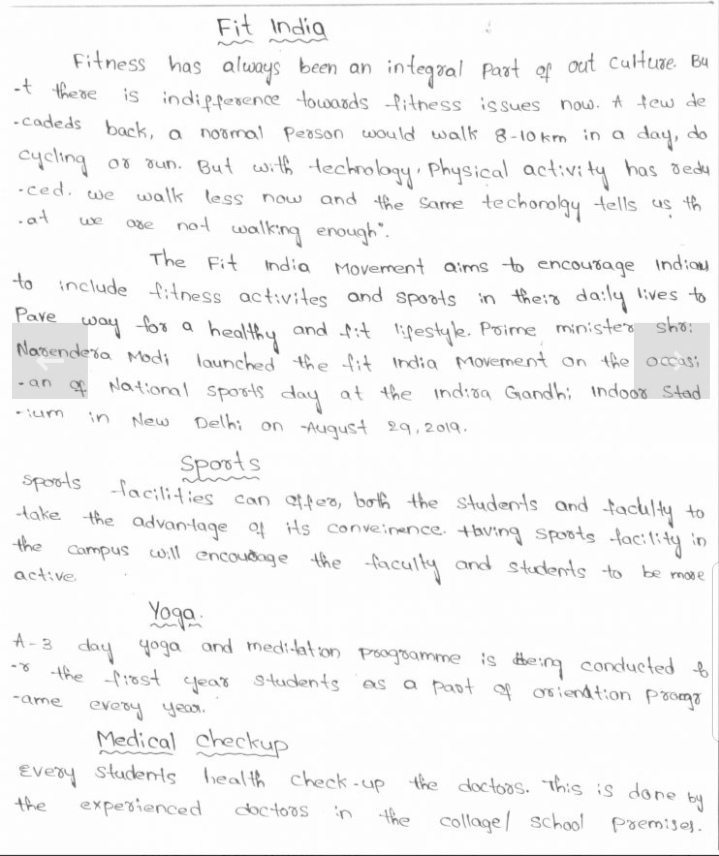 Fit India
Fitness has always been an integral Part of out culture. Bu
-t there is indifference towards fitness issues now. A few de
-cadeds back, a normal Person would walk 8-10km in a day, do
cycling or run. But with technology, Physical activity has redu
-ced. we walk less now and the same techonolgy tells us th
-at we are not walking enough".
The Fit India Movement aims to encourage Indians
to include fitness activites and sports in their daily lives to
Pave way for a healthy and fit lifestyle. Prime minister shri
Narendera Modi launched the fit India Movement on the occasi
-an of National sports day at the Indira Gandhi Indoor Stad
-ium in New Delhi on August 29, 2019.
Sports
Sports facilities can offer, both the students and faculty to
take the advantage of its conveinence. Having sports facility in
the campus will encourage the faculty and students to be more
active.
Yoga.
A-3 day yoga and meditation programme is being conducted fo
-r the first year students as a part of oriendtion Progr
-ame every year.
Medical checkup
Every students health check-up the doctors. This is done by
the experienced doctors in the collage/ school Premises.